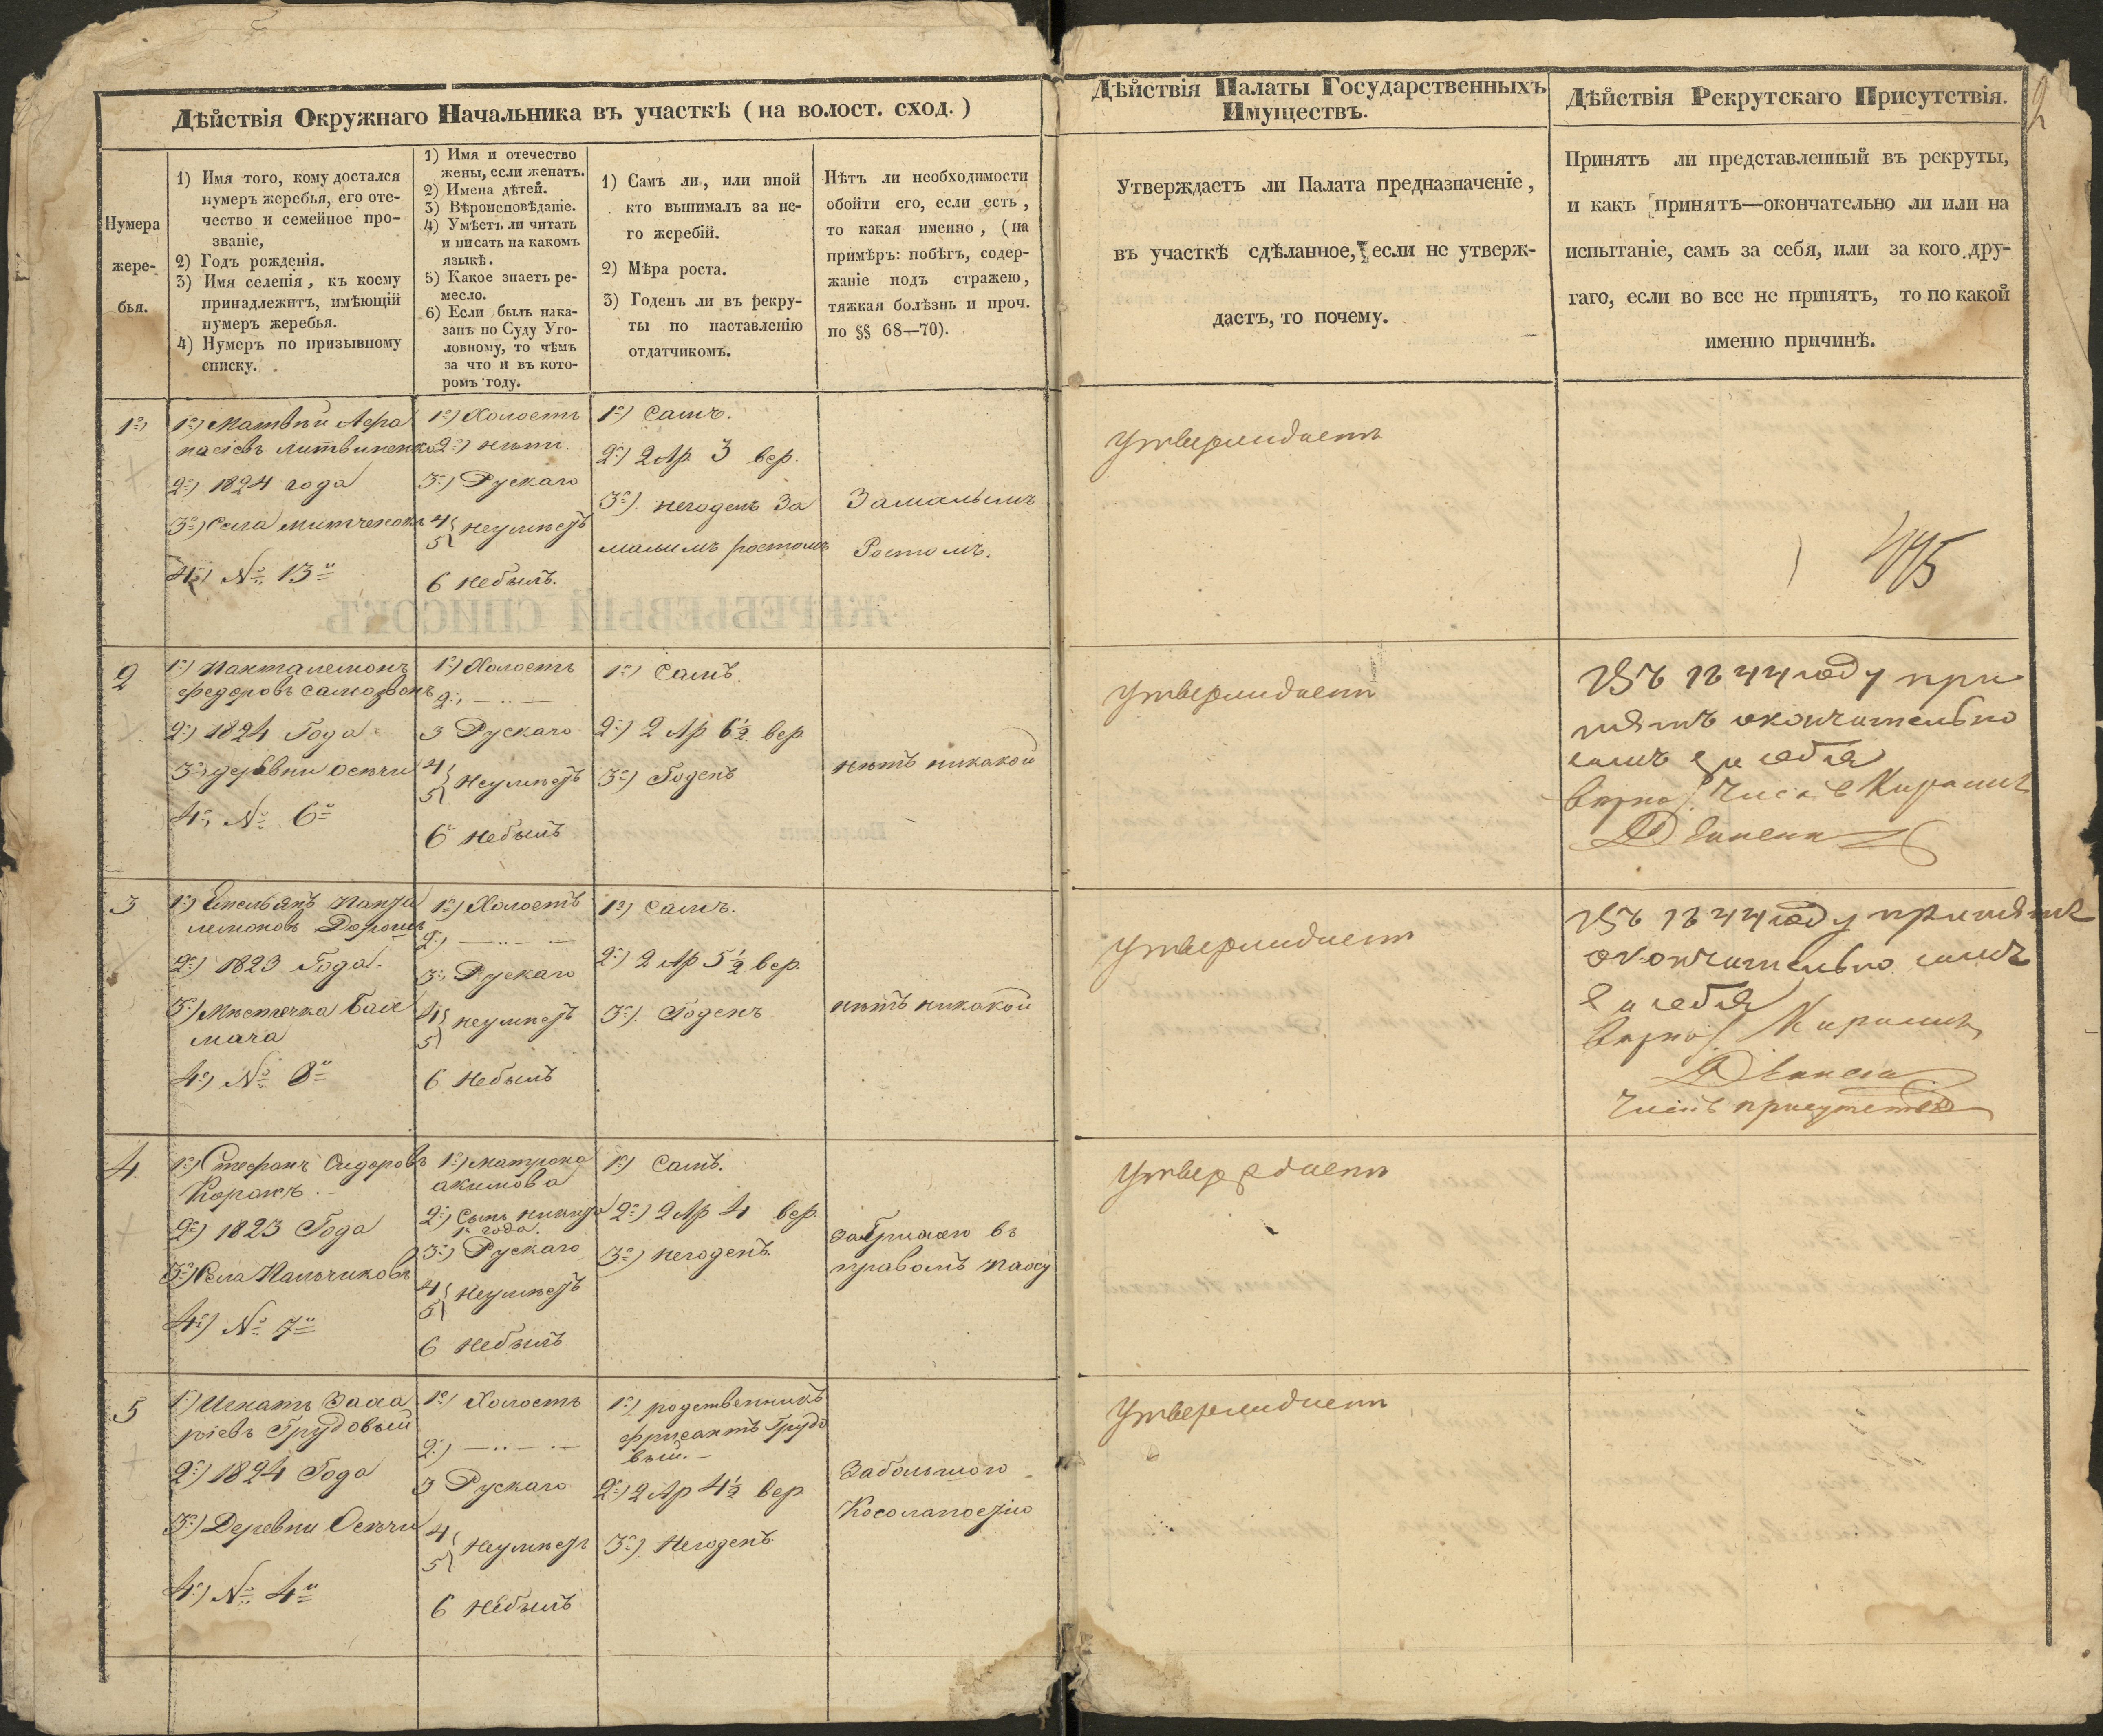 Дѣйствія Окружнаго Начальника въ участкѣ (на волост. сход.)
Нумера
жере-
бья.
1) Имя того, кому достался
нумеръ жеребья, его оте-
чество и семейное про-
званіе,
2) Годъ рожденія.
3) Имя селенія, къ коему
принадлежитъ, имѣющій
нумеръ жеребья.
4) Нумеръ по призывному
списку.
1) Имя и отечество
жены, если женатъ.
2) Имена дѣтей.
3) Вѣроисповѣданіе.
4) Умѣетъ ли читать
и писать на какомъ
языкѣ.
5) Какое знаетъ ре-
месло.
6) Если былъ нака-
занъ по Суду Уго-
ловному, то чѣмъ
за что и въ кото-
ромъ году.
1) Самъ ли, или иной
кто вынималъ за не-
го жеребій.
2) Мѣра роста.
3) Годенъ ли въ рекру-
ты по наставленію
отдатчикомъ.
Нѣтъ ли необходимости
обойти его, если есть,
то какая именно, (на
примѣръ: побѣгъ, содер-
жаніе подъ стражею,
тяжкая болѣзнь и проч.
по §§ 68—70).
Дѣйствія Палаты Государственныхъ
Имуществъ.
Утверждаетъ ли Палата предназначеніе,
въ участкѣ сдѣланное, если не утверж-
даетъ, то почему.
Дѣйствія Рекрутскаго Присутствія.
Принятъ ли представленный въ рекруты,
и какъ принятъ—окончательно ли или на
испытаніе, самъ за себя, или за кого дру-
гаго, если во все не принятъ, то по какой
именно причинѣ.
2
1е)
1е) Матвѣй Афа
насіевъ Литвиненко
2е) 1824 года
3е) Села Митченокъ
4е) № 13й
1е) Холостъ
2е) нѣтъ.
3е) Рускаго
4
5} неумѣетъ
6 небылъ.
1е) Самъ.
2е) 2 Ар 3 вер.
3е). негоденъ За
малымъ ростомъ
Замалымъ
Ростомъ.
Утверждаетъ
445
2
1е) Панталемонъ
федоровъ самозвонъ
2е) 1824 Года
3е) деревни Осѣчи
4е) № 6й
1е) Холостъ
2е) — .. —
3 Рускаго
4
5} Неумѣетъ
6 небылъ
1е) Самъ.
2е) 2 Ар 6½ вер
3е) Годенъ
нѣтъ никакой
Утверждаетъ
Въ 1844 году при
нятъ окончательно
самъ за себя
Вѣрно
3
1е) Емельянъ Панта
лемоновъ Дорошъ
2е) 1823 Года.
3е) Мѣстечка Бах
мача
4е) № 8й
1е) Холостъ
2е) — .. — .—
3е) Рускаго
4
5} неумѣетъ
6 Небылъ
1е) Самъ.
2е) 2 Ар 5½ вер.
3е). Годенъ
нѣтъ никакой
Утверждаетъ
Въ 1844 году принятъ
окончательно самъ
за себя
Вѣрно
Членъ присутствія
4
1е) Стефанъ Сидоровъ
Коронъ.
2е) 1823 Года
3е) Села Пальчиковъ
4е) № 7й
1е) матрона
акимова
2е) сынъ никита
1 года.
3е) Рускаго
4
5} Неумѣетъ
6 небылъ
1е) Самъ.
2е) 2 Ар 4 вер.
3е) негоденъ.
за Грижею въ
правомъ паху
Утверждаетъ
5
1е) Игнатъ Заха
ріевъ Грудовый
2е) 1824 Года
3е) Деревни Осѣчи
4е) № 4й
1е) Холостъ
2е) — .. — .—
3 Рускаго
4
5} Неумѣетъ
6 небылъ
1е) родственникъ
Грудо
вый. —
2е) 2 Ар 4½ вер
3е). Негоденъ
Забольшою
Косолапостію
Утверждаетъ